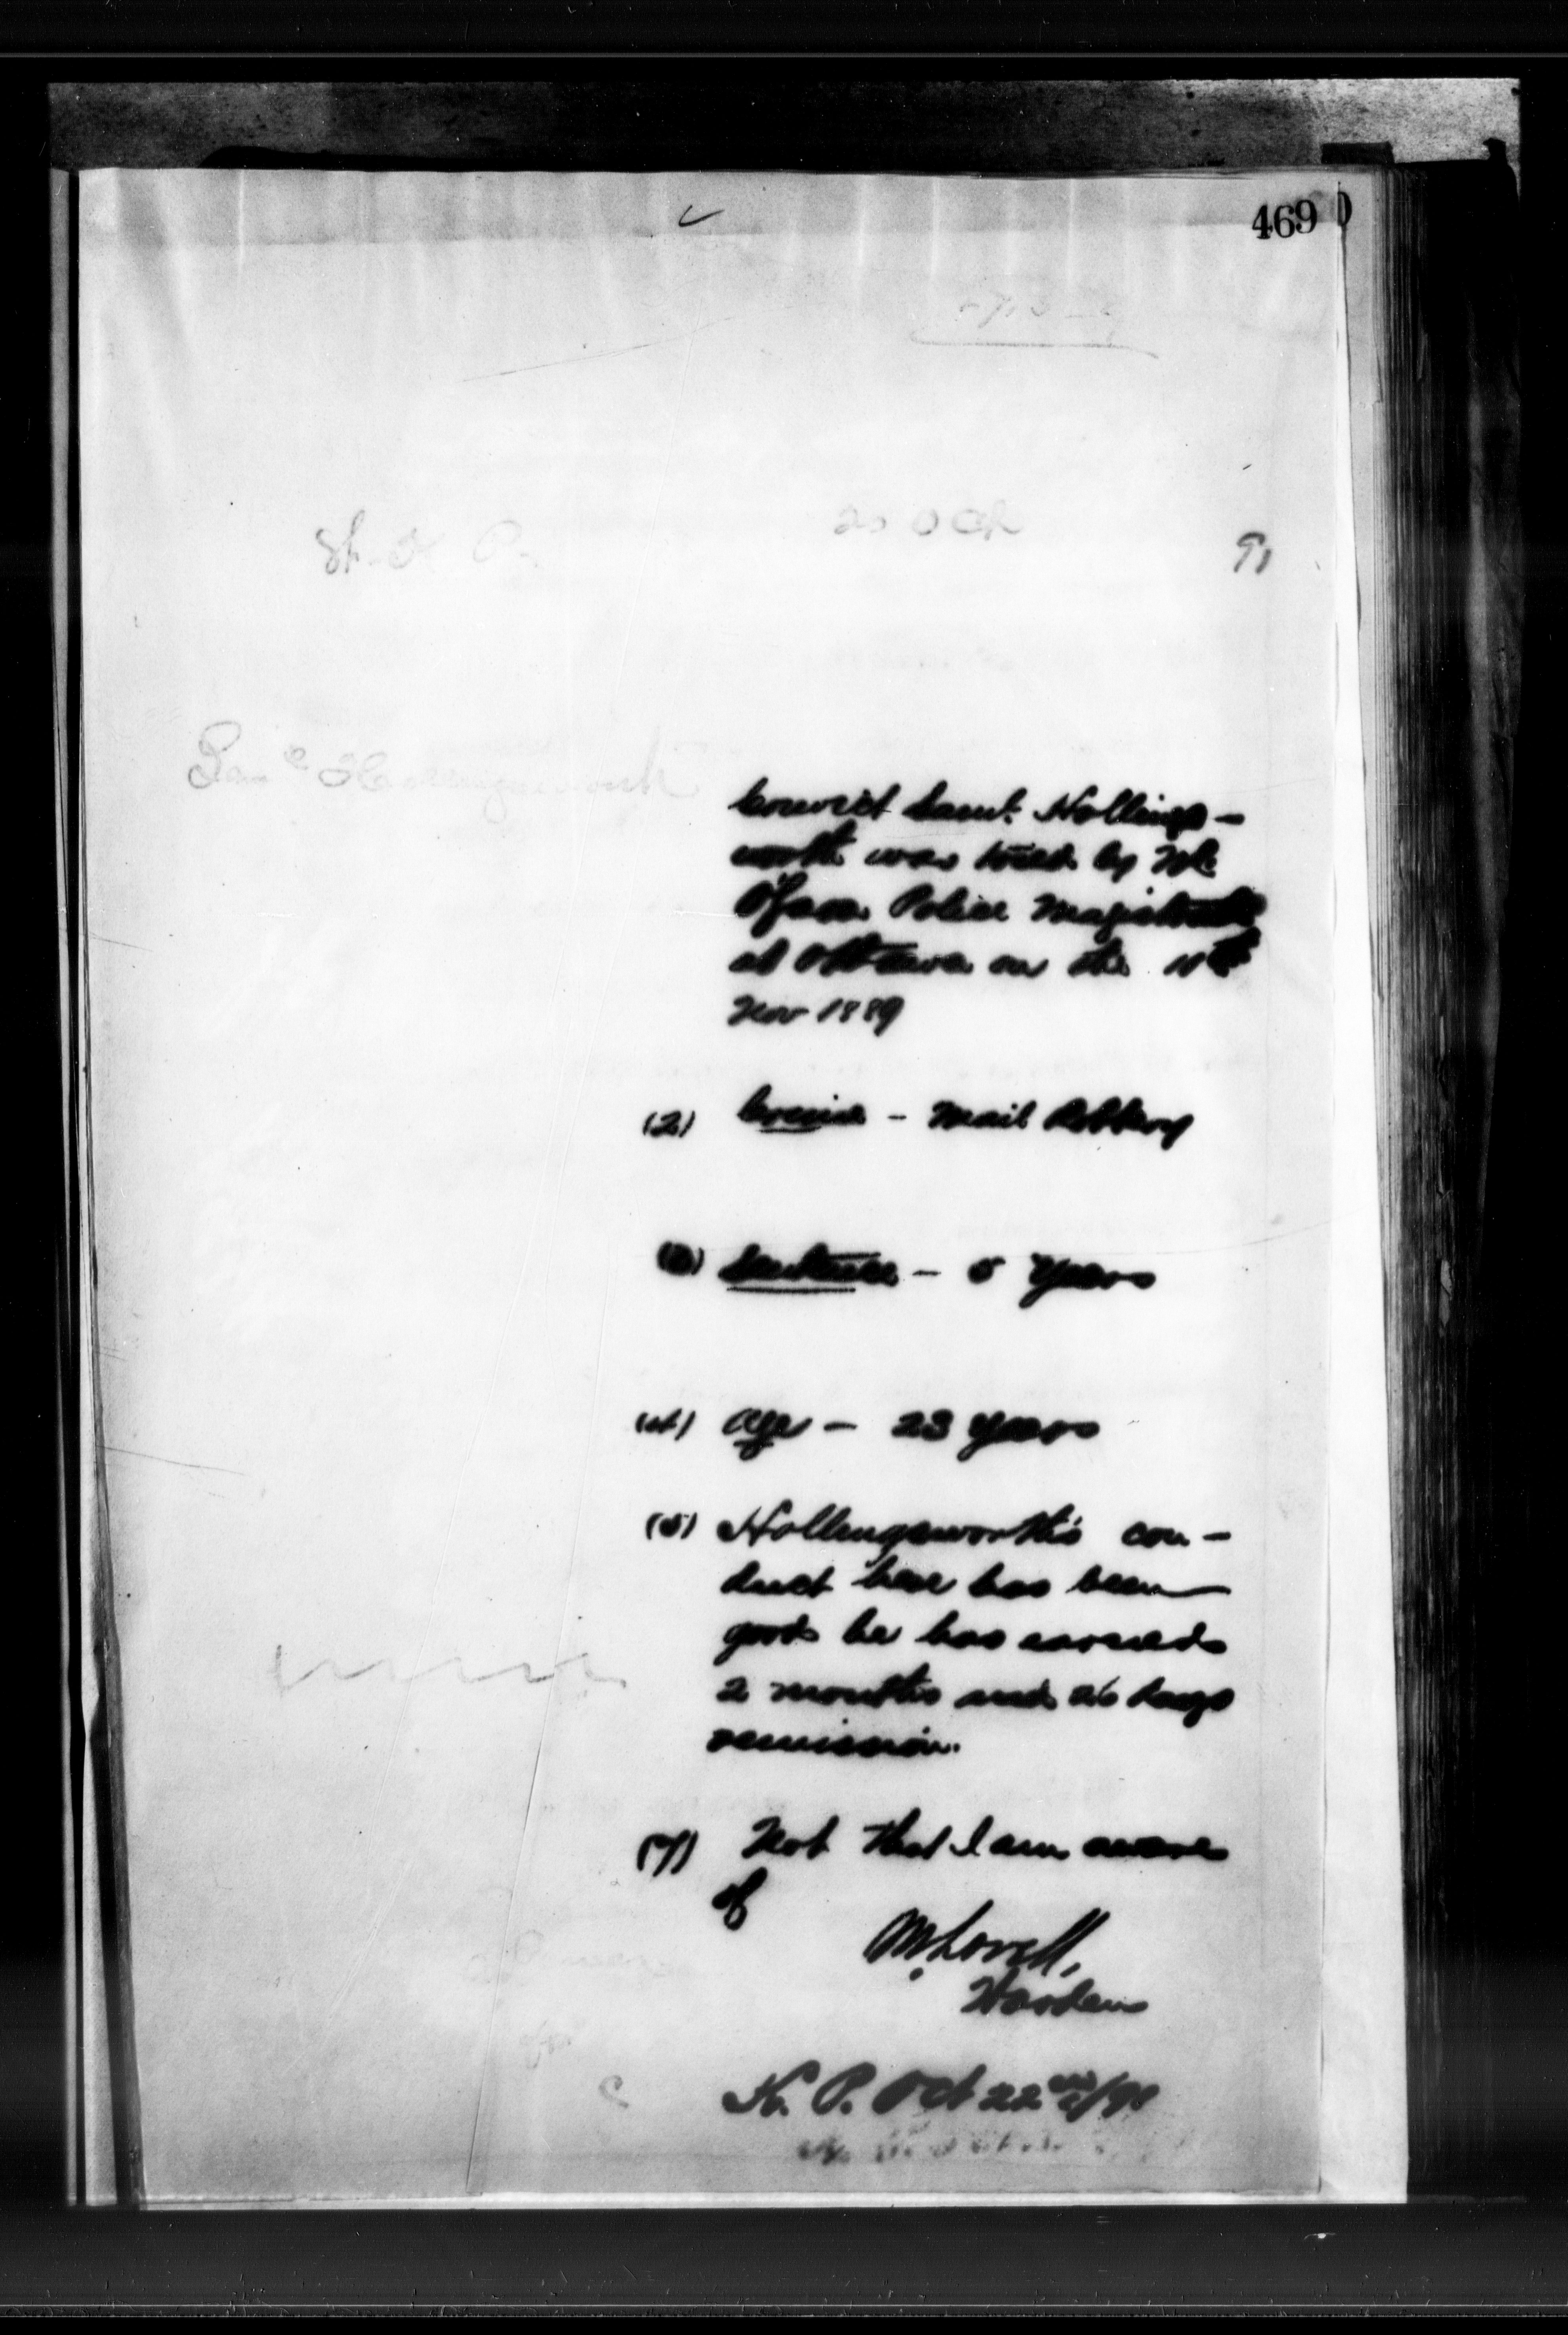 469
20 Oct 91
Saml Hollingsworth
Convict Saml. Hollings-
worth was tried by Mr
O'Gara Police Magistrate
at Ottawa on the 11th
Nov 1889
(2) Crime - Mail Robbery
(3) Sentence - 5 Years
(4) Age - 23 years
(5) Hollingsworth's con-
duct here has been
good he has earned
2 months and 26 days
remission.
(7) Not that I am aware
of
M. Lavell,
Warden
K. P. Oct 22nd/91